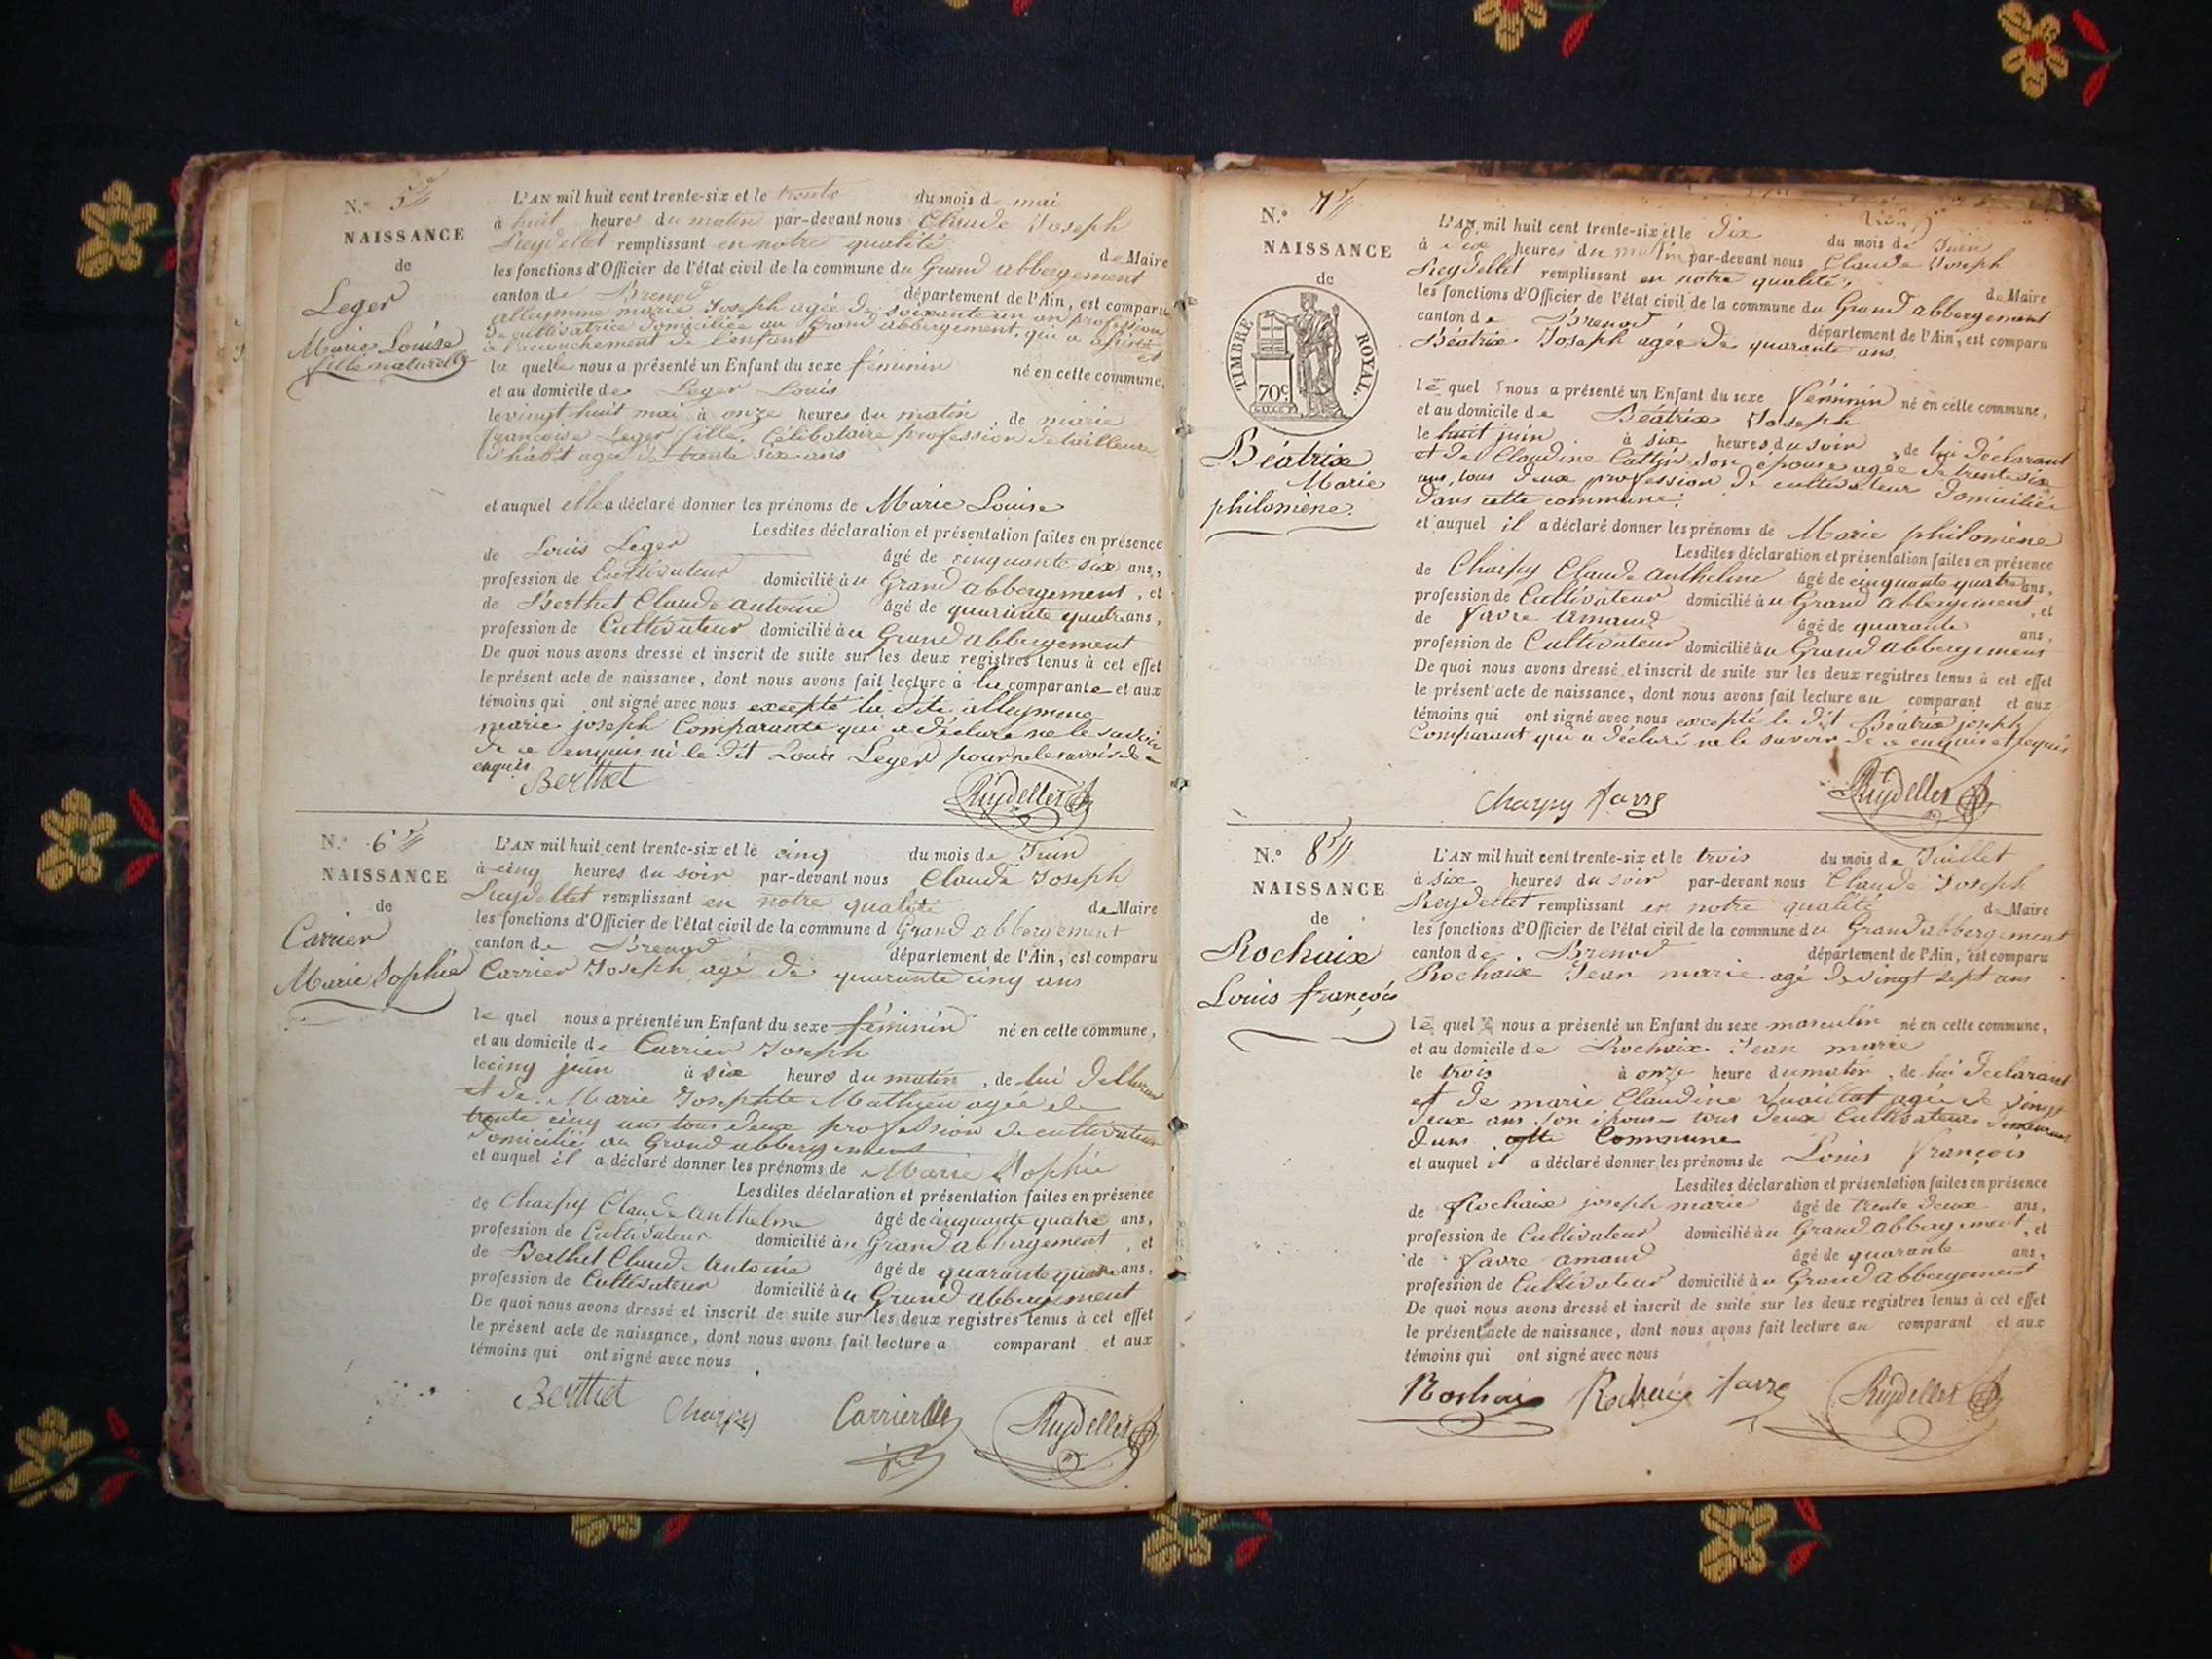 N.° 5
NAISSANCE
de
Leger
Marie Louise
fille naturelle
L'AN mil huit cent trente-six et le trente du mois de mai
à huit heures du matin par-devant nous Claude Joseph
Reydellet remplissant en notre qualité de Maire
les fonctions d'Officier de l'état civil de la commune du Grand abbergement
canton de Brenod département de l'Ain, est comparu
allymene marie Joseph agée de soixante un an profession
de cultivatrice domiciliée au Grand abbergement, qui a assisté
à l'accouchement de l'enfant et
la quelle nous a présenté un Enfant du sexe féminin né en cette commune,
et au domicile de Leger Louis
le vingt huit mai à onze heures du matin, de marie
françoise Leger fille, Célibataire profession de tailleuse
d'habit agée de trente six ans
et auquel elle a déclaré donner les prénoms de Marie Louise
Lesdites déclaration et présentation faites en présence
de Louis Leger âgé de cinquante six ans,
profession de Cultivateur domicilié au Grand abbergement, et
de Berthet Claude antoine âgé de quarante quatre ans,
profession de Cultivateur domicilié au Grand abbergement
De quoi nous avons dressé et inscrit de suite sur les deux registres tenus à cet effet
le présent acte de naissance, dont nous avons fait lecture à la comparante et aux
témoins qui ont signé avec nous excepté la dite allymene
marie joseph Comparante qui a déclaré ne le savoir
de ce enquis ni le dit Louis Leger pour ne le savoir de ce
enquis
Berthet Reydellet
N.° 6
NAISSANCE
de
Carrier
Marie Sophie
L'AN mil huit cent trente-six et le cinq du mois de Juin
à cinq heures du soir par-devant nous Claude Joseph
Reydellet remplissant en notre qualité de Maire
les fonctions d'Officier de l'état civil de la commune d Grand abbergement
canton de Brenod département de l'Ain, est comparu
Carrier Joseph agé de quarante cinq ans
le quel nous a présenté un Enfant du sexe féminin né en cette commune,
et au domicile de Carrier Joseph
le cinq juin à six heures du matin, de lui déclarant
et de Marie Josephte Mathieu agée de
trente cinq ans tous deux profession de cultivateur
domicilié au Grand abbergement
et auquel il a déclaré donner les prénoms de Marie Sophie
Lesdites déclaration et présentation faites en présence
de Charpy Claude Anthelme âgé de cinquante quatre ans,
profession de Cultivateur domicilié au Grand abbergement, et
de Berthet Claude Antoine âgé de quarante quatre ans,
profession de Cultivateur domicilié au Grand abbergement
De quoi nous avons dressé et inscrit de suite sur les deux registres tenus à cet effet
le présent acte de naissance, dont nous avons fait lecture a comparant et aux
témoins qui ont signé avec nous
Berthet Charpy Carrier Reydellet
N.° 7
NAISSANCE
de
TIMBRE ROYAL.
70c
Béatrix
Marie
philomène.
L'AN mil huit cent trente-six et le dix du mois de Juin
à dix heures du matin par-devant nous Claude Joseph
Reydellet remplissant en notre qualité, de Maire
les fonctions d'Officier de l'état civil de la commune du Grand abbergement
canton de Brenod département de l'Ain, est comparu
Béatrix Joseph agé de quarante ans
le quel nous a présenté un Enfant du sexe féminin né en cette commune,
et au domicile de Béatrix Joseph
le huit juin à six heures du soir, de lui déclarant
et de Claudine Cattin son épouse agée de trente six
ans, tous deux profession de cultivateur domiciliés
dans cette commune.
et auquel il a déclaré donner les prénoms de Marie philomène
Lesdites déclaration et présentation faites en présence
de Charpy Claude Anthelme âgé de cinquante quatre ans,
profession de Cultivateur domicilié au Grand abbergement, et
de Favre Amand âgé de quarante ans,
profession de Cultivateur domicilié au Grand abbergement
De quoi nous avons dressé et inscrit de suite sur les deux registres tenus à cet effet
le présent acte de naissance, dont nous avons fait lecture au comparant et aux
témoins qui ont signé avec nous excepté le dit Béatrix joseph
Comparant qui a déclaré ne le savoir de ce enquis et requis
Charpy favre Reydellet
N.° 8
NAISSANCE
de
Rochaix
Louis françois
L'AN mil huit cent trente-six et le trois du mois de Juillet
à six heures du soir par-devant nous Claude Joseph
Reydellet remplissant en notre qualité de Maire
les fonctions d'Officier de l'état civil de la commune du Grand abbergement
canton de Brenod département de l'Ain, est comparu
Rochaix Jean marie agé de vingt sept ans
le quel nous a présenté un Enfant du sexe masculin né en cette commune,
et au domicile de Rochaix Jean marie
le trois à onze heure du matin, de lui déclarant
et de marie Claudine agée de vingt
deux ans son épouse tous deux Cultivateurs demeurant
dans cette Commune
et auquel il a déclaré donner les prénoms de Louis François
Lesdites déclaration et présentation faites en présence
de Rochaix joseph marie âgé de trente deux ans,
profession de Cultivateur domicilié au Grand abbergement, et
de Favre amand âgé de quarante ans,
profession de Cultivateur domicilié au Grand abbergement
De quoi nous avons dressé et inscrit de suite sur les deux registres tenus à cet effet
le présent acte de naissance, dont nous avons fait lecture au comparant et aux
témoins qui ont signé avec nous
Rochaix Rochaix favre Reydellet